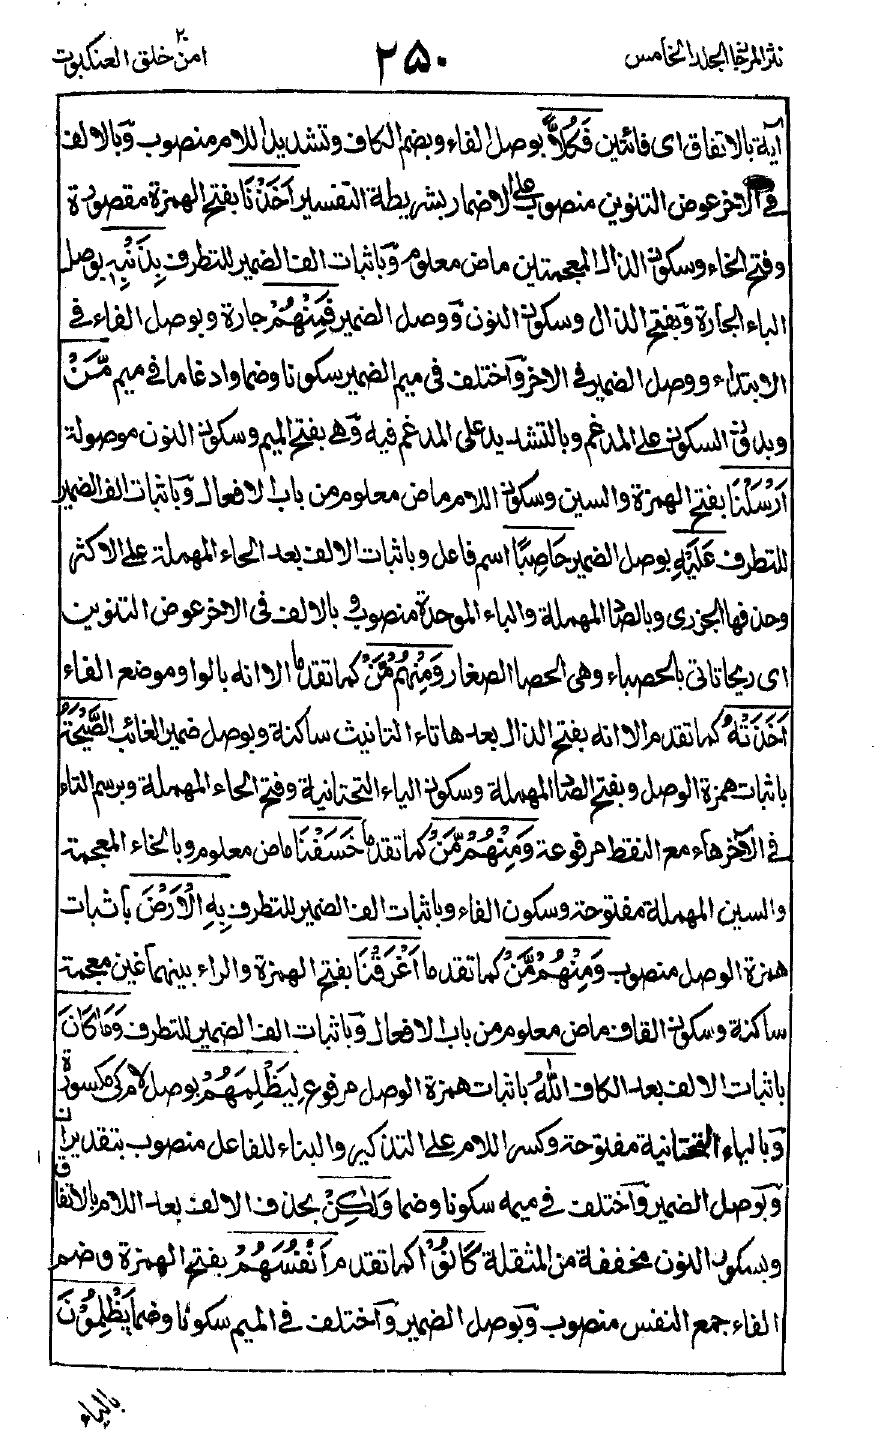 نثر المرجان المجلد الخامس
٢٥٠
امن خلق ٢٠ العنكبوت
آية بالاتفاق اى فائتين فَكُلًّا بوصل الفاء وبضم الكاف وتشديد اللام منصوب وبالالف
فى الآخر عوض التنوين منصوب على الاضمار بشريطة التفسير اَخَذْنَا بفتح الهمزة مقصورة
وفتح الخاء وسكون الذال المعجمتين ماض معلوم وباثبات الف الضمير للتطرف بِذَنْبِهٖ بوصل
الباء الجارة وبفتح الذال وسكون النون ووصل الضمير فَمِنْهُمْ جارة وبوصل الفاء فى
الابتداء ووصل الضمير فى الاخر واختلف فى ميم الضمير سكونا وضما وادغاما فى ميم مَّنْ
وبدون السكون على المدغم وبالتشديد على المدغم فيه وهى بفتح الميم وسكون النون موصولة
اَرْسَلْنَا بفتح الهمزة والسين وسكون اللام ماض معلوم من باب الافعال وباثبات الف الضمير
للتطرف عَلَيْهِ بوصل الضمير حَاصِبًا اسم فاعل وباثبات الالف بعد الحاء المهملة على الاكثر
وحذفها الجزرى وبالصاد المهملة والباء الموحدة منصوب وبالالف فى الاخر عوض التنوين
اى ريحا تاتى بالحصباء وهى الحصا الصغار وَمِنْهُمْ مَّنْ كما تقدما الا انه بالواو موضع الفاء
اَخَذَتْهُ كما تقدم الا انه بفتح الذال بعدها تاء التانيث ساكنة وبوصل ضمير الغائب الصَّيْحَةُ
باثبات همزة الوصل وبفتح الصاد المهملة وسكون الياء التحتانية وفتح الحاء المهملة وبرسم التاء
فى الآخر هاء مع النقط مرفوعة وَمِنْهُمْ مَّنْ كما تقدما خَسَفْنَا ماض معلوم وبالخاء المعجمة
والسين المهملة مفتوحة وسكون الفاء وباثبات الف الضمير للتطرف بِهِ الْاَرْضَ باثبات
همزة الوصل منصوب وَمِنْهُمْ مَّنْ كما تقدما اَغْرَقْنَا بفتح الهمزة والراء بينهما غين معجمة
ساكنة وسكون القاف ماض معلوم من باب الافعال وباثبات الف الضمير للتطرف وَمَا كَانَ
باثبات الالف بعد الكاف اللّٰهُ باثبات همزة الوصل مرفوع لِيَظْلِمَهُمْ بوصل لام كى مكسورة
وبالياء التحتانية مفتوحة وكسر اللام على التذكير والبناء للفاعل منصوب بتقدير ان
وبوصل الضمير واختلف فى ميمه سكونا وضما وَلٰكِنْ بحذف الالف بعد اللام بالاتفاق
وبسكون النون مخففة من المثقلة كَانُوْا كما تقدم اَنْفُسَهُمْ بفتح الهمزة وضم
الفاء جمع النفس منصوب وبوصل الضمير واختلف فى الميم سكونا وضما يَظْلِمُوْنَ
بالياء